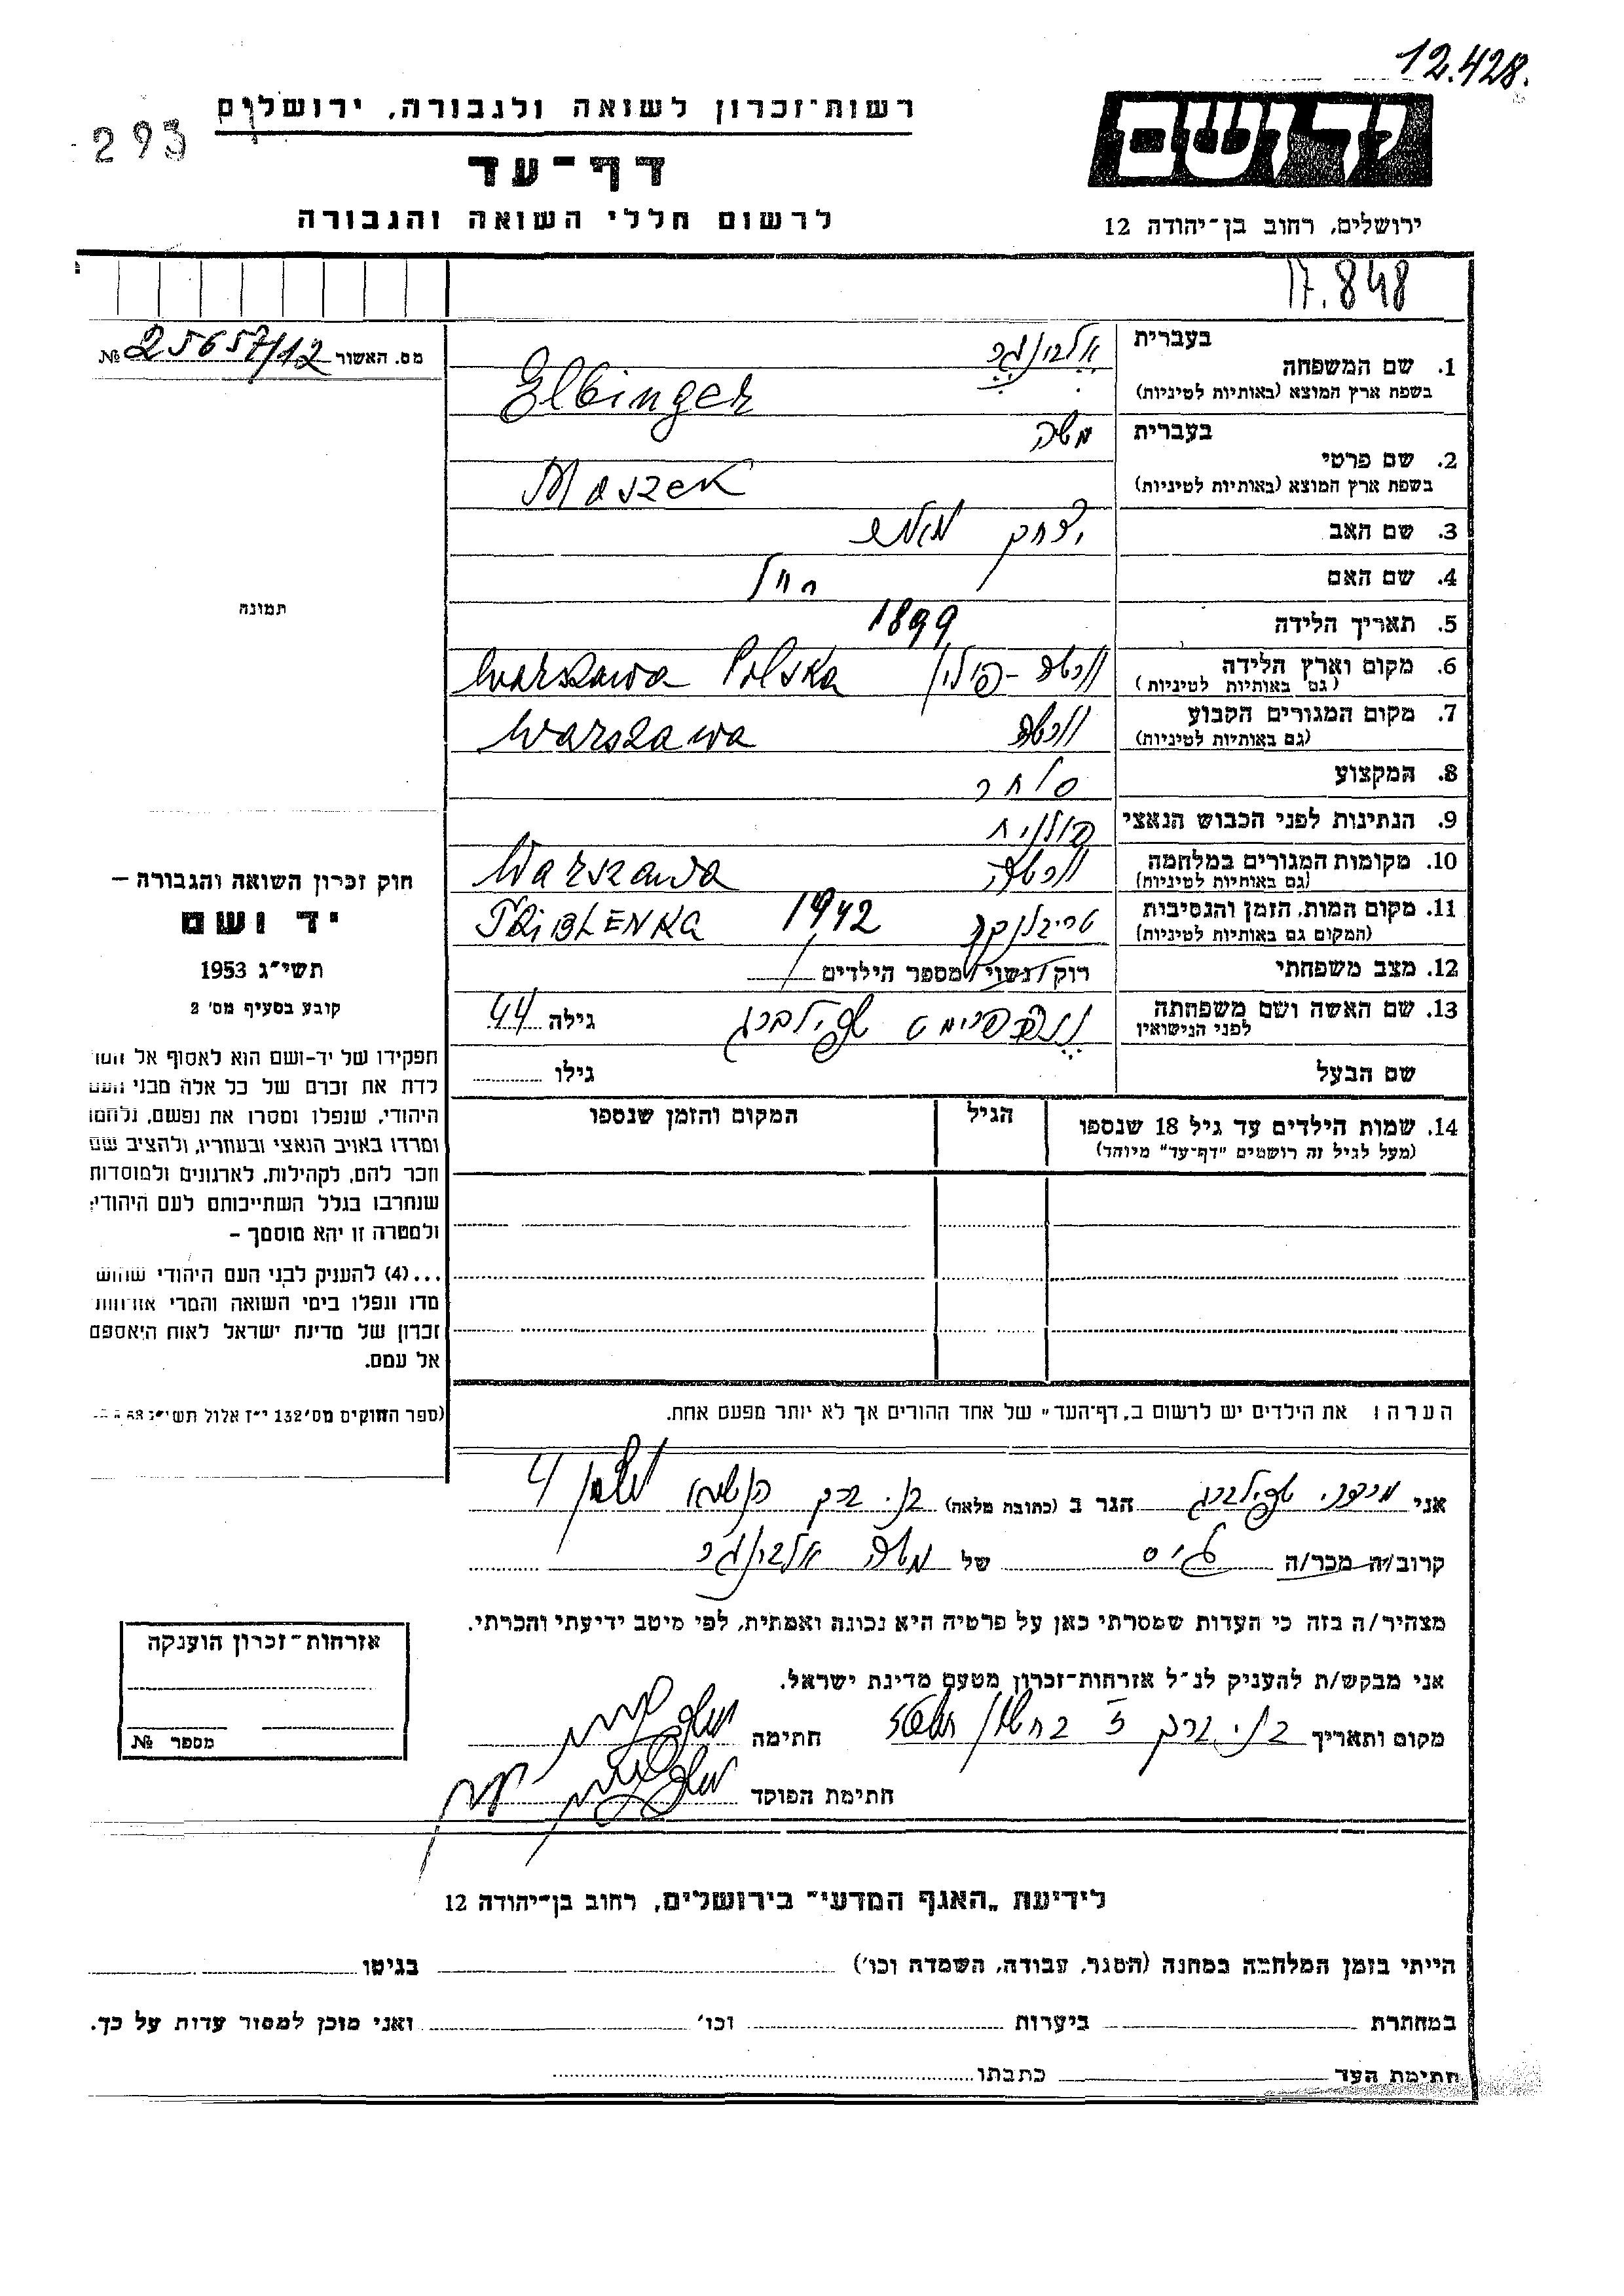 12.428.
293
רשות־זכרון לשואה ולגבורה, ירושלים
דף־עד
לרשום חללי השואה והגבורה
ידושם
ירושלים, רחוב בן־יהודה 12
17.848
מס. האשור 25657/12 №
1. שם המשפחה
בעברית אלבינגר
בשפת ארץ המוצא (באותיות לטיניות) Elbinger
2. שם פרטי
בעברית משה
בשפת ארץ המוצא (באותיות לטיניות) Moszek
3. שם האב יצחק
4. שם האם
5. תאריך הלידה 1899
6. מקום וארץ הלידה ורשה - פולין Warszawa Polska
(גם באותיות לטיניות)
7. מקום המגורים הקבוע ורשה Warszawa
(גם באותיות לטיניות)
8. המקצוע סוחר
9. הנתינות לפני הכבוש הנאצי פולנית
10. מקומות המגורים במלחמה ורשה Warszawa
(גם באותיות לטיניות)
11. מקום המות, הזמן והנסיבות טריבלנקה 1942 TRIBLENKA
(המקום גם באותיות לטיניות)
12. מצב משפחתי רוק/נשוי/מספר הילדים
13. שם האשה ושם משפחתה שפילברג גילה 44
לפני הנישואין
שם הבעל גילו
14. שמות הילדים עד גיל 18 שנספו הגיל המקום והזמן שנספו
(מעל לגיל זה רושמים "דף־עד" מיוחד)
הערה: את הילדים יש לרשום ב„דף־העד" של אחד ההורים אך לא יותר מפעם אחת.
תמונה
חוק זכרון השואה והגבורה –
יד ושם
תשי"ג 1953
קובע בסעיף מס' 2
תפקידו של יד-ושם הוא לאסוף אל המו
לדת את זכרם של כל אלה מבני העם
היהודי, שנפלו ומסרו את נפשם, נלחמו
ומרדו באויב הנאצי ובעוזריו, ולהציב שם
וזכר להם, לקהילות, לארגונים ולמוסדות
שנחרבו בגלל השתייכותם לעם היהודי;
ולמטרה זו יהא מוסמך –
...(4) להעניק לבני העם היהודי שהוש
מדו ונפלו בימי השואה והמרי אזרחות
זכרון של מדינת ישראל לאות היאספם
אל עמם.
(ספר החוקים מס' 132 י"ז אלול תשי"ג
אני שפילברג הגר ב (כתובת מלאה) בני ברק 4
קרוב/ה מכר/ה גיס של משה אלבינגר
מצהיר/ה בזה כי העדות שמסרתי כאן על פרטיה היא נכונה ואמתית, לפי מיטב ידיעתי והכרתי.
אני מבקש/ת להעניק לנ"ל אזרחות־זכרון מטעם מדינת ישראל.
מקום ותאריך בני ברק חתימה
חתימת הפוקד
אזרחות־זכרון הוענקה
מספר №
לידיעת „האגף המדעי" בירושלים, רחוב בן־יהודה 12
הייתי בזמן המלחמה במחנה (הסגר, עבודה, השמדה וכו') בגיטו
במחתרת ביערות וכו' ואני מוכן למסור עדות על כך.
חתימת העד כתבתו